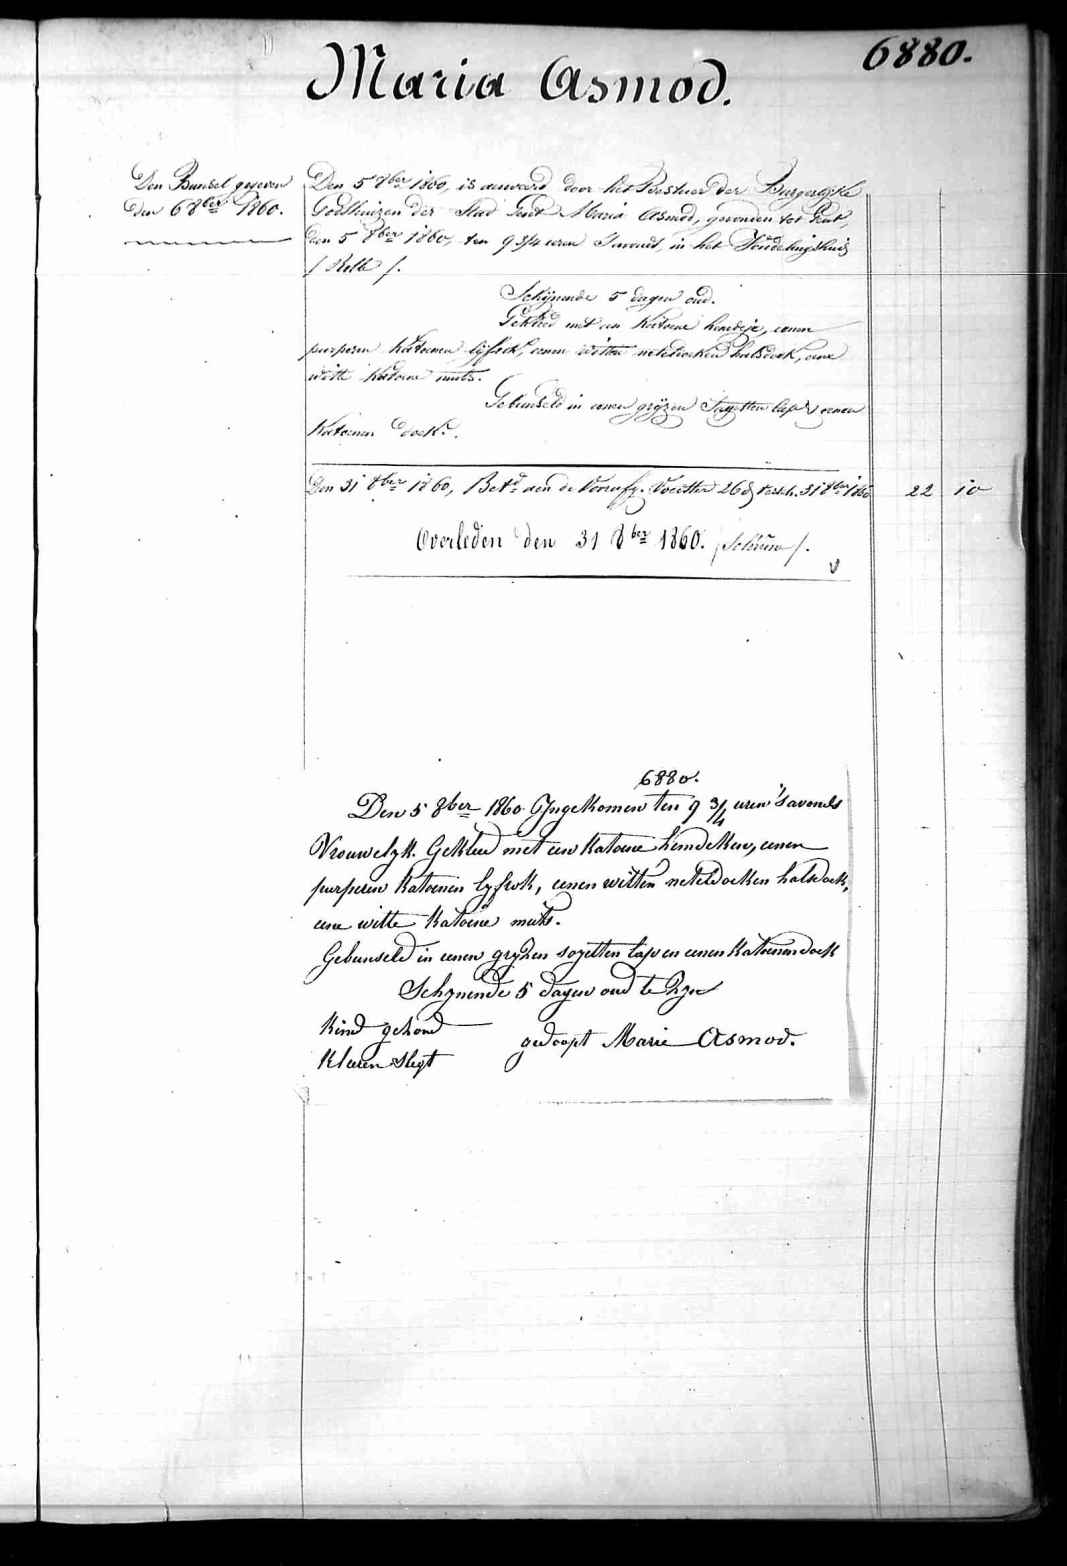 6880.
Maria Asmod.
Den Bunsel gegeven
den 6 8ber 1860.
Den 5 8ber 1860, is aenveerd door het Bestuer der Burgerlijke
Godshuizen der Stad Gent Maria Asmod, gevonden tot Gent,
den 5 8ber 1860, ten 9 3/4 uren s'avonds, in het Vondelingshuis
/ Rolle /.
Schijnende 5 dagen oud.
Gekleed met een katoene hemdeje, eenen
purperen katoenen lijfrok, eenen witten neteldoeken halsdoek, eene
witte katoene muts.
Gebunseld in eenen grijzen Sayetten lap & eenen
katoenen doek.
Den 31 8ber 1860, Betd aen de Voorsz. Voedster 26 d 31 8ber 1860 22 10
Overleden den 31 8ber 1860. /
6880.
Den 5 8ber 1860 Ingekomen ten 9 3/4 uren 's avonds
Vrouwelyk. Gekleed met een katoene hemdeken, eenen
purperen katoenen lyfrok, eenen witten neteldoeken halsdoek,
eene witte katoene muts.
Gebunseld in eenen gryzen sayetten lap en eenen katoenen doek
Schynende 5 dagen oud te zyn
Kind gezond
gedoopt Marie Asmod.
Kleeren slegt